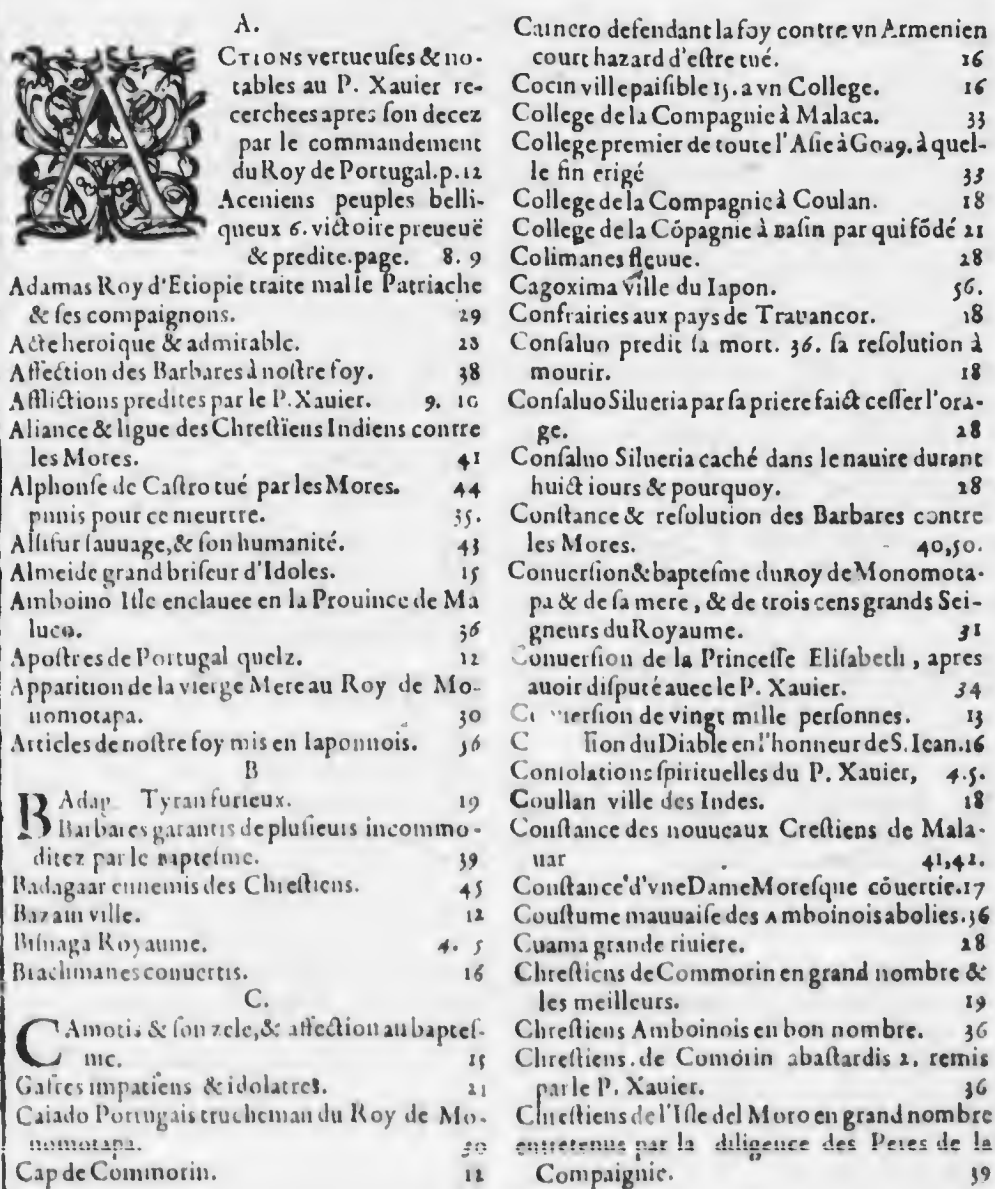 A.
ACTIONS vertueuſes & no-
tables au P. Xauier re-
cerchees apres ſon decez
par le commandement
du Roy de Portugal. p. 12
Aceniens peuples belli-
queux 6. victoire preueuë
& predite. page. 8. 9
Adamas Roy d'Etiopie traite mal le Patriache
& ſes compaignons. 29
Acte heroique & admirable. 28
Affection des Barbares à noſtre foy. 38
Afflictions predites par le P. Xauier. 9. 10
Aliance & ligue des Chreſtiens Indiens contre
les Mores. 41
Alphonſe de Caſtro tué par les Mores. 44
punis pour ce meurtre. 35.
Aſſiſur ſauuage, & ſon humanité. 43
Almeide grand briſeur d'Idoles. 15
Amboino Iſle enclauee en la Prouince de Ma
luco. 36
Apoſtres de Portugal quelz. 12
Apparition de la vierge Mere au Roy de Mo-
nomotapa. 30
Articles de noſtre foy mis en Iaponnois. 56
B
BAdap Tyran furieux. 19
Barbares garantis de pluſieurs incommo-
ditez par le bapteſme. 39
Badagaar ennemis des Chreſtiens. 45
Bazain ville. 12
Biſnaga Royaume. 4. 5
Brachmanes conuertis. 16
C.
CAmotis & ſon zele, & affection au bapteſ-
me. 15
Gafres impatiens & idolatres. 21
Caiado Portugais trucheman du Roy de Mo-
nomotapa. 30
Cap de Commorin. 12
Caincro defendant la foy contre vn Armenien
court hazard d'eſtre tué. 16
Cocin ville paiſible 15. a vn College. 16
College de la Compagnie à Malaca. 33
College premier de toute l'Aſie à Goa 9. à quel-
le fin erigé 33
College de la Compagnie à Coulan. 18
College de la Cōpagnie à Baſin par qui fōdé 21
Colimanes fleuue. 28
Cagoxima ville du Iapon. 56.
Confrairies aux pays de Trauancor. 18
Conſaluo predit ſa mort. 36. ſa reſolution à
mourir. 18
Conſaluo Silueria par ſa priere faict ceſſer l'ora-
ge. 28
Conſaluo Silueria caché dans le nauire durant
huict iours & pourquoy. 28
Conſtance & reſolution des Barbares contre
les Mores. 40,50.
Conuerſion & bapteſme du Roy de Monomota-
pa & de ſa mere, & de trois cens grands Sei-
gneurs du Royaume. 31
Conuerſion de la Princeſſe Eliſabeth, apres
auoir diſputé auec le P. Xauier. 34
Conuerſion de vingt mille perſonnes. 13
du Diable en l'honneur de S. Iean. 16
Conſolations ſpirituelles du P. Xauier, 4. 5.
Coullan ville des Indes. 18
Conſtance des nouueaux Creſtiens de Mala-
uar 41,42.
Conſtance d'vne Dame Moreſque cōuertie. 17
Couſtume mauuaiſe des Amboinois abolies. 36
Cuama grande riuiere. 28
Chreſtiens de Commorin en grand nombre &
les meilleurs. 19
Chreſtiens Amboinois en bon nombre. 36
Chreſtiens. de Comorin abaſtardis 2, remis
par le P. Xauier. 36
Chreſtiens de l'Iſle del Moro en grand nombre
entretenus par la diligence des Peres de la
Compaignie. 39